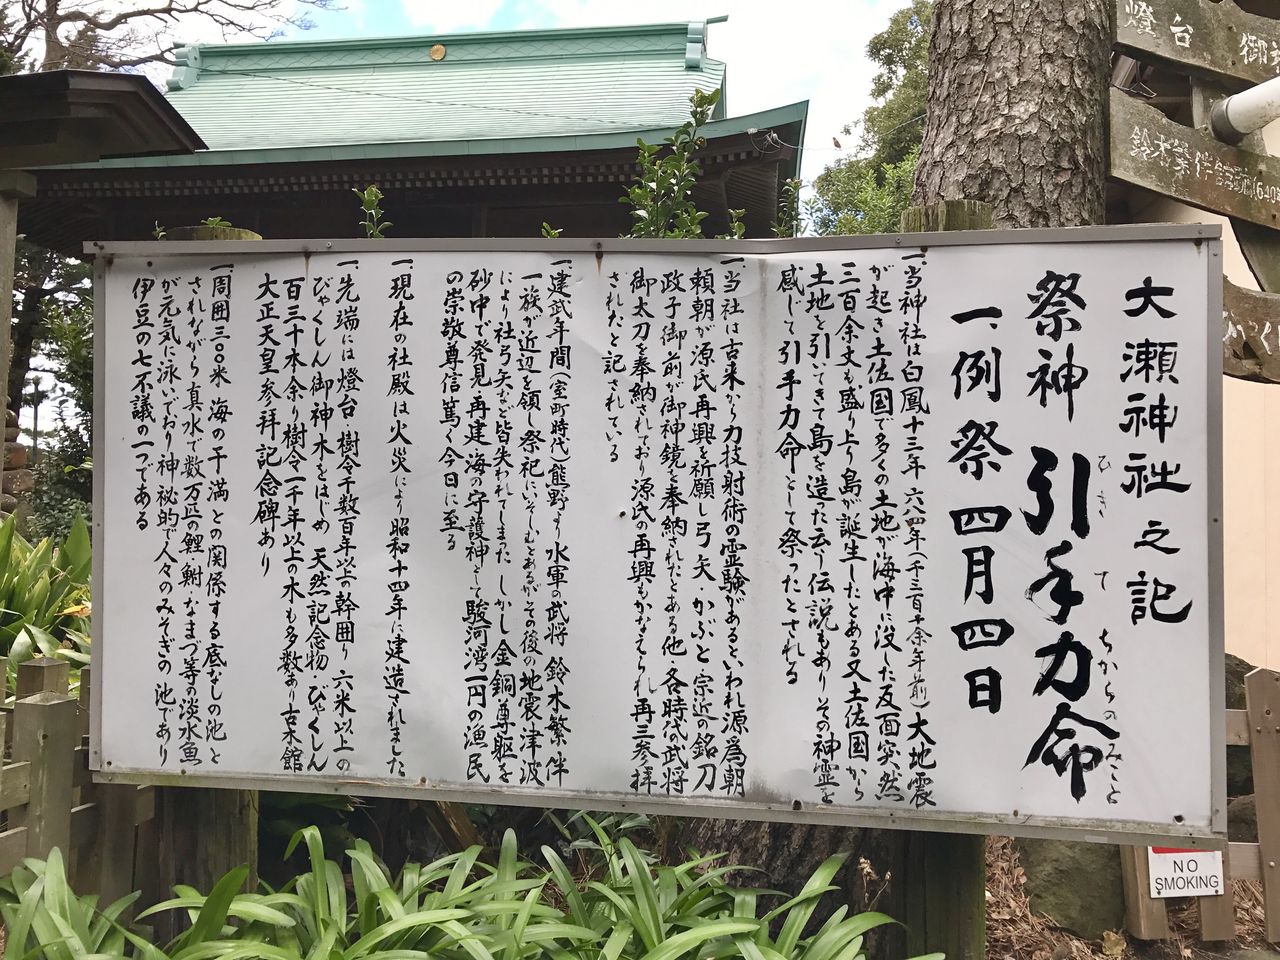 大瀬神社之記
祭神 引手力命
ひき て ちからのみこと
一、例祭 四月四日
一、当神社は白鳳十三年 六八四年(千三百十余年前)大地震
が起き土佐国で多くの土地が海中に没した反面突然
三百余丈も盛り上り島が誕生したとある又土佐国から
土地を引いてきて島を造った云う伝説もありその神霊を
感じて引手力命として祭ったとされる
一、当社は古来から力技射術の霊験があるといわれ源為朝
頼朝が源氏再興を祈願し弓矢・かぶと・宗近の銘刀
政子御前が御神鏡を奉納されたとある他・各時代武将
御太刀を奉納されており源氏の再興もかなえられ再三参拝
されたと記されている
一、建武年間(室町時代)熊野より水軍の武将 鈴木繁伴
一族が近辺を領し祭祀にいそしむとあるがその後の地震津波
により社弓矢など皆失われてしまた しかし金銅尊躯を
砂中で発見・再建・海の守護神として駿河湾一円の漁民
の崇敬尊信篤く今日に至る
一、現在の社殿は火災により昭和十四年に建造されました
一、先端には燈台・樹令千数百年以上の幹囲り六米以上の
びゃくしん御神木をはじめ 天然記念物・びゃくしん
百三十本余り樹令一千年以上の木も多数あり古木館
大正天皇参拝記念碑あり
一、周囲三〇〇米 海の干満との関係する底なしの池と
されながら真水で数万匹の鯉・鮒・なまづ等の淡水魚
が元気に泳いでおり神秘的で人々のみそぎの池であり
伊豆の七不議の一つである
燈台
鈴木繁伴
NO
SMOKING